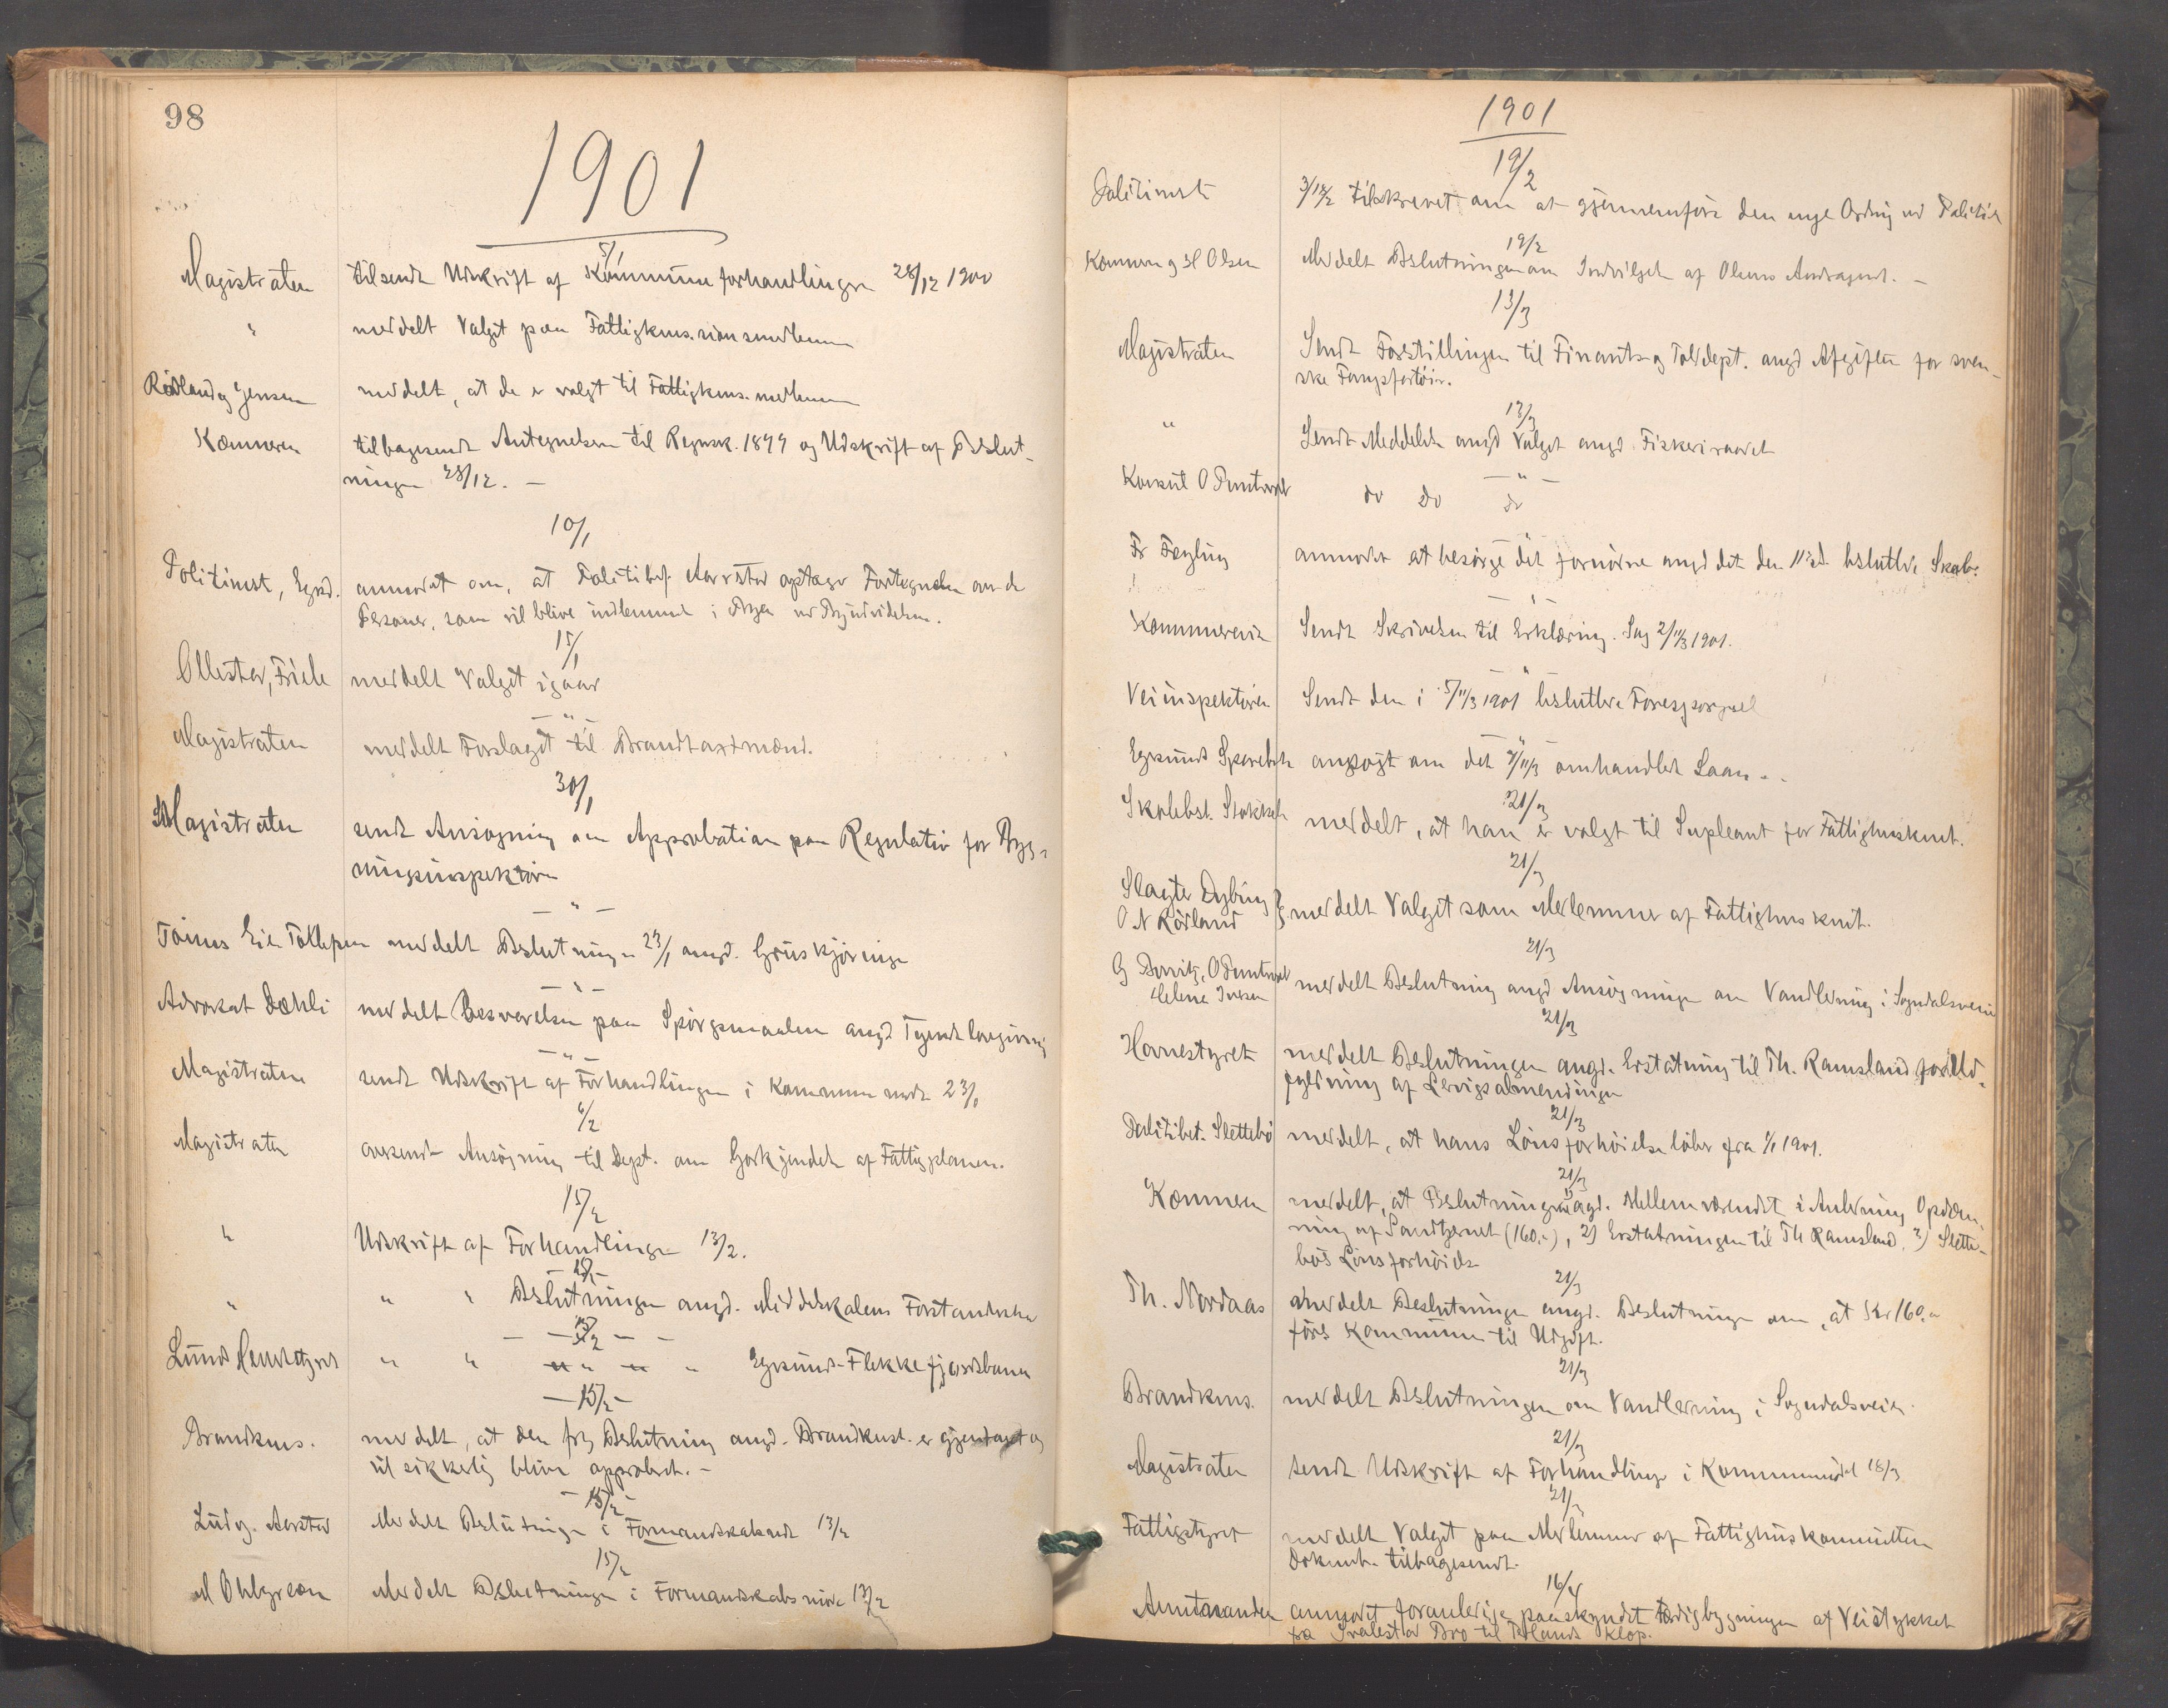 98
1901
5/1
Magistraten tilsendt Udskrift af Kommuneforhandlinger 28/12 1900
" meddelt Valget paa Fattigkms.sionsmedlemmer
Rödland og Jensen meddelt, at de er valgt til Fattigkms. medlemmer
Kæmneren tilbagesendt Antegnelsen til Regnsk. 1899 og Udskrift af Beslut-
ningen 28/12. —
10/1
Politimst, Egsd. anmodet om, at Politibetj. Aarstad optager Fortegnelse over de
Personer, som vil blive indlemmet i Byen ved Byudvidelsen.
15/1
Ollestad, Friele meddelt Valget igaar
— " —
Magistraten meddelt Forslaget til Brandtaxtmænd.
30/1
Magistraten sendt Ansøgning om Approbation paa Regulativ for Byg-
ningsinspektören
— " —
Tönnes Eik Tollefsen meddelt Beslutningen 23/1 angd. Gruskjöringen
— " —
Advokat Dæhli meddelt Besvarelsen paa Spörgsmaalene angd Tyendelovgivning
— " —
Magistraten sendt Udskrift af Forhandlingen i Kommunemöde 23/1
6/2
Magistraten oversendt Ansøgning til Dept. om Godkjendelse af Fattigplanen.
15/2
" Udskrift af Forhandlingen 13/2.
15/2
" " " Beslutningen angd. Middelskolens Forstanderska
— 15/2 —
Lunds Herredstyret " " " " Egersund-Flekkefjordsbanen
— 15/2 —
Brandkms. meddelt, at den frg Beslutning angd. Brandkonst. er gjentaget og
vil sikkerlig blive approberet. —
— 15/2 —
Ludv. Aarstad Meddelt Beslutningen i Formandskabsmöde 13/2
15/2
M Ohlgreen Meddelt Beslutningen i Formandskabsmöde 13/2
1901
19/2
Politimst 3/12/2 tilskrevet om at gjennemföre den nye Ordning ved Politiet
19/2
Kæmneren og H Olsen Meddelt Beslutningen om Indvilgelse af Olsens Andragende. —
13/3
Magistraten Sendt Forestillingen til Finants og Tolddept. angd Afgiften for sven-
ske Fangsfartöier.
13/3
" Sendt Meddelelse angd Valget angd. Fiskeriraadet
— " —
Konsul O Puntervold do do do
"
Fr Feyling anmodet at besörge det fornödne angd det den 11 ds. besluttede Skab.
— " —
Kæmneren Sendt Skrivelsen til Erklæring. Sag 2/11/3 1901.
— " —
Veiinspektören Sendt den i 5/11/3 1901 besluttede Forespørgsel
— " —
Egersunds Sparebank ansøgt om det 7/11/3 omhandlet Laan. —
21/3
Skolebst. Stokkeb meddelt, at han er valgt til Supleant for Fattighuskmt.
21/3
Slagter Dybing
O N Rödland meddelt Valget som Medlemmer af Fattighuskmt.
21/3
G Dorritz, O Puntervold
Helene Iversen meddelt Beslutning angd Ansøgningen om Vandledning i Sogndalsveien
21/3
Havnestyret meddelt Beslutningen angd. Erstatning til Th. Ramsland for Ud-
fyldning af Lervigsalmendingen
21/3
Politibet. Slettebö meddelt, at hans Lönsforhöielse löber fra 1/1 1901.
21/3
Kæmneren meddelt, at Beslutningen 1) agd. Mellemværendet i Anledning Opdæm-
ning af Sandtjernet (160.-), 2) Erstatningen til Th Ramsland, 3) Slette-
bös Lönsforhöielse
21/3
Th. Nordaas Meddelt Beslutningen angd. Beslutningen om, at Kr 160.-
förs Kommunen til Udgift.
21/3
Brandkms. meddelt Beslutningen om Vandledning i Sogndalsveien.
21/3
Magistraten sendt Udskrift af Forhandlingen i Kommunemödet 18/3
21/3
Fattigstyret meddelt Valget paa Medlemmer af Fattighuskommitteen
Dokumt. tilbagesendt.
16/4
Amtmanden anmodet foranledige paaskyndet Færdigbygningen af Veistykket
fra Svalestad Bro til Klop.